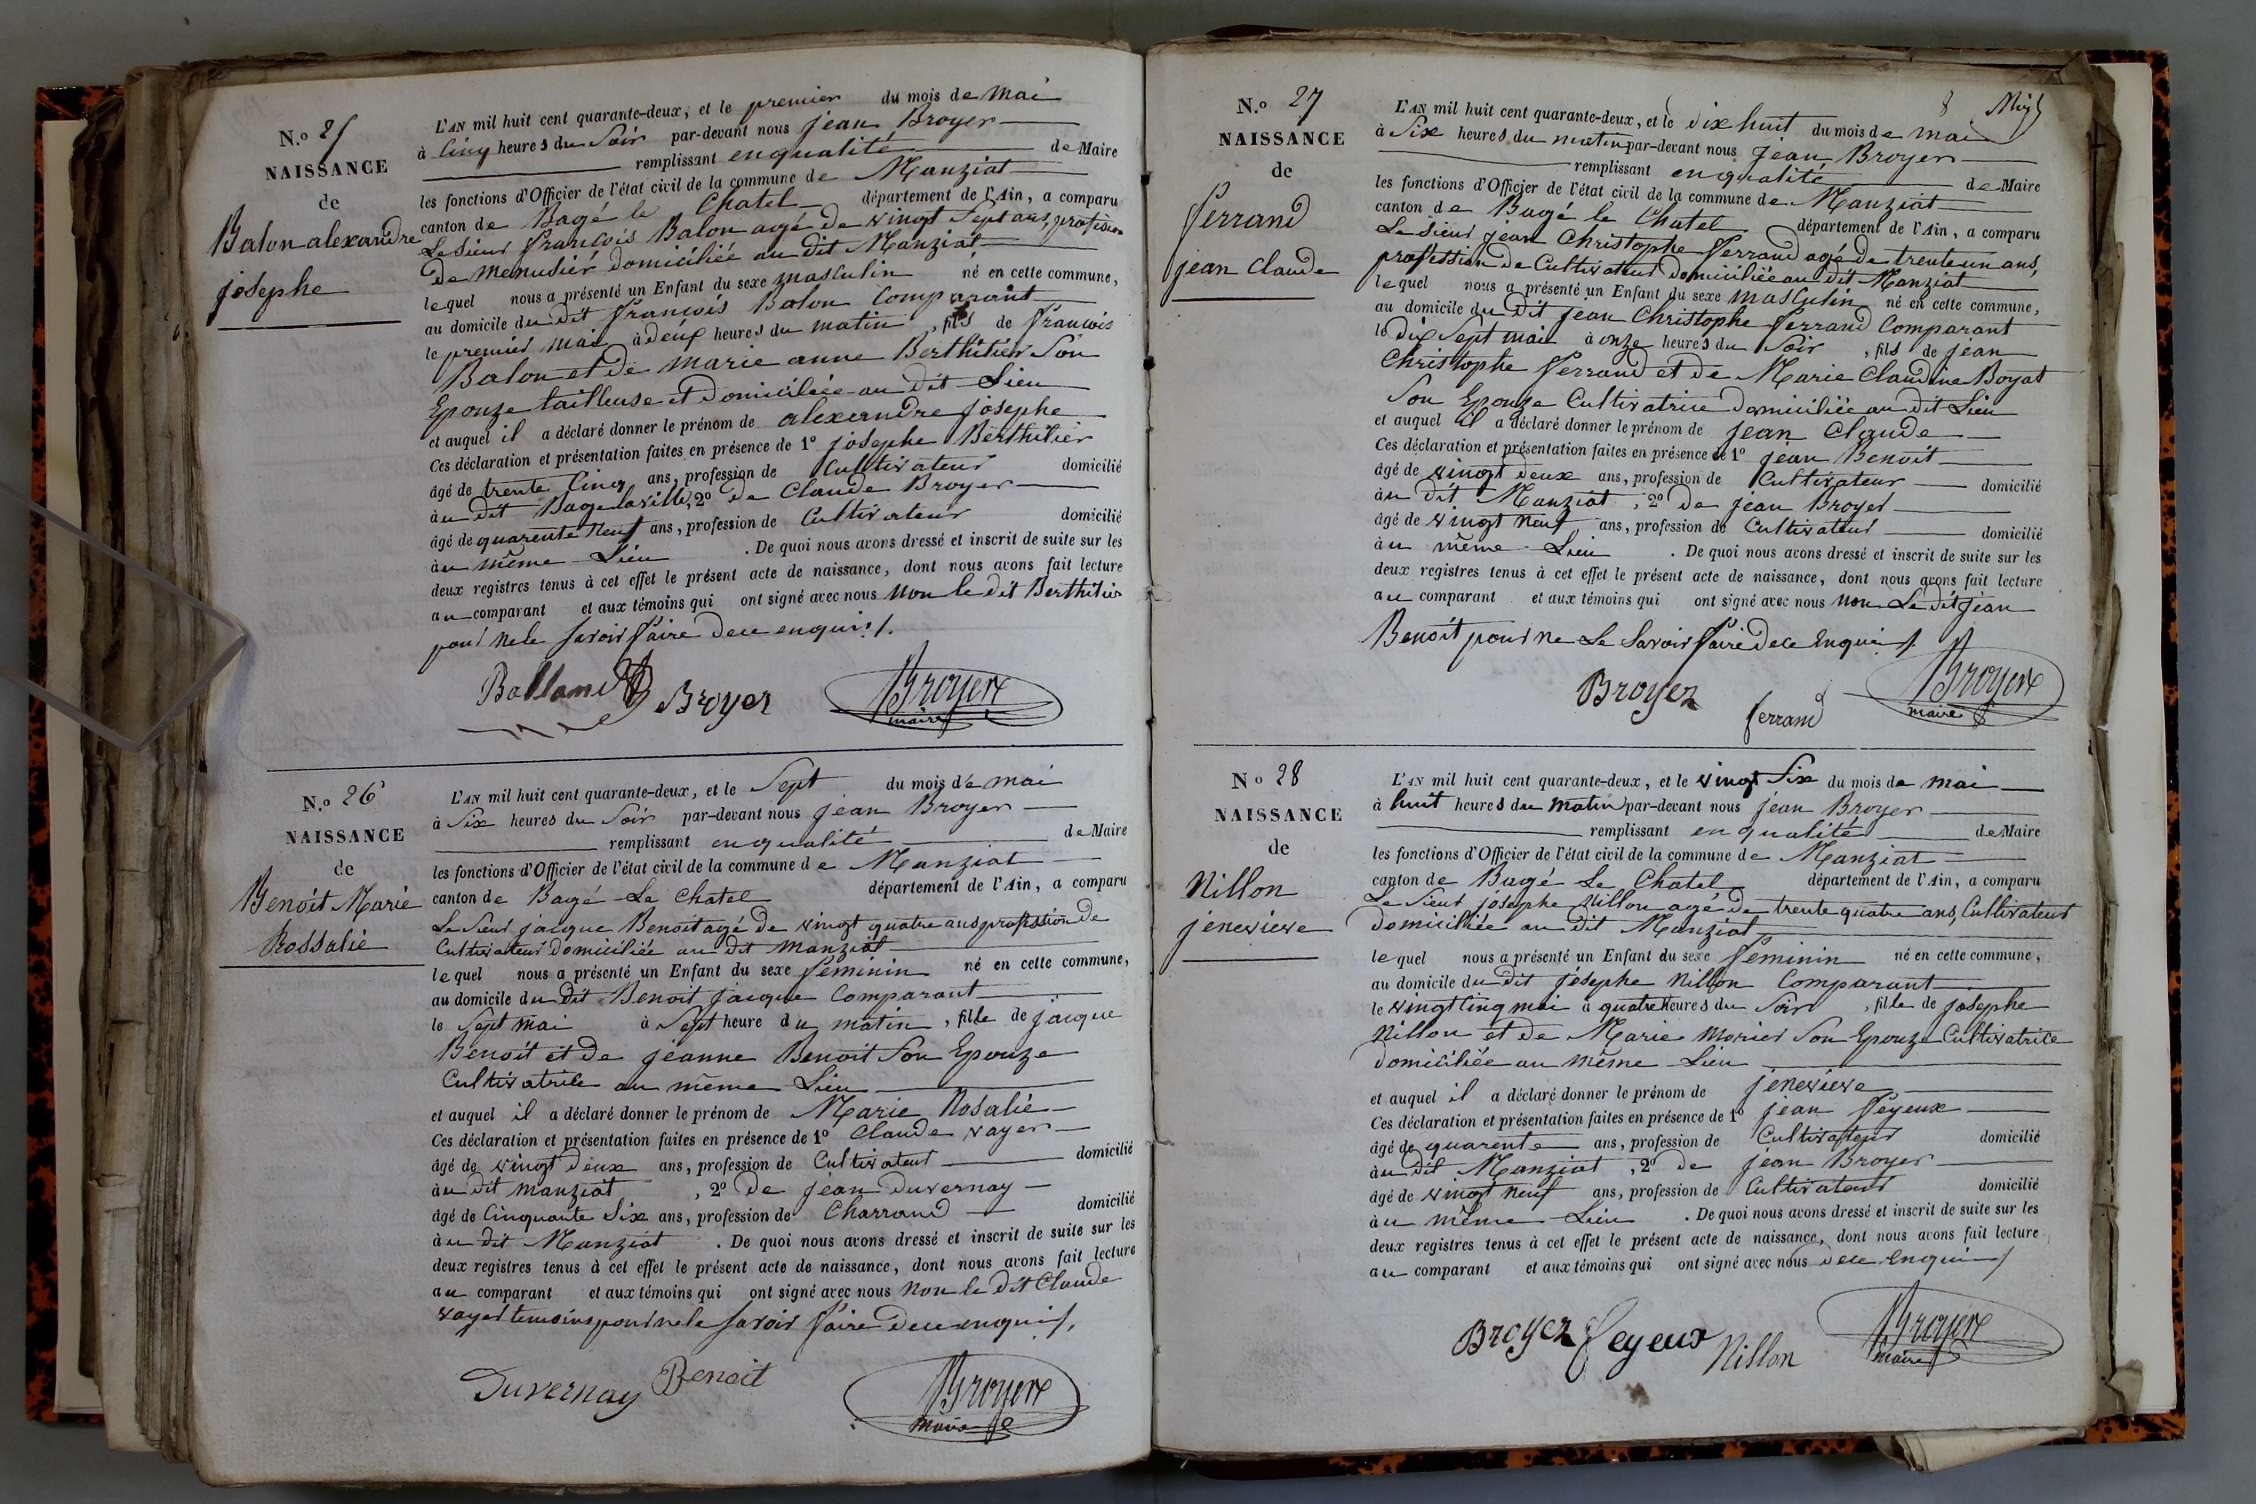 N.o 25
NAISSANCE
de
Balon alexandre
josephe
L'AN mil huit cent quarante-deux, et le premier du mois de mai
à Cinq heures du Soir par-devant nous jean Broyer
remplissant en qualité de Maire
les fonctions d'Officier de l'état civil de la commune de Manziat
canton de Bagé le Chatel département de l'Ain, a comparu
Le Sieur françois Balon agé de vingt Sept ans, profession
de Menusier domiciliée au dit Manziat
lequel nous a présenté un Enfant du sexe masculin né en cette commune,
au domicile du dit françois Balon Comparant
le premier mai à deux heures du matin, fils de françois
Balon et de marie anne Berthilier Son
Epouze tailleuse et Domiciliée au dit Lieu
et auquel il a déclaré donner le prénom de alexendre josephe
Ces déclaration et présentation faites en présence de 1o josephe Berthilier
âgé de trente Cinq ans, profession de Cultivateur domicilié
au dit Bagelaville, 2o de Claude Broyer
âgé de quarente neuf ans, profession de Cultivateur domicilié
au même Lieu . De quoi nous avons dressé et inscrit de suite sur les
deux registres tenus à cet effet le présent acte de naissance, dont nous avons fait lecture
au comparant et aux témoins qui ont signé avec nous Non le dit Berthilier
pour ne le Savoir faire de ce enquis /.
Balland Broyer Broyer
maire
N.o 26
NAISSANCE
de
Benoit Marie
Rossalie
L'AN mil huit cent quarante-deux, et le Sept du mois de mai
à Six heures du Soir par-devant nous jean Broyer
remplissant en qualité de Maire
les fonctions d'Officier de l'état civil de la commune de Manziat
canton de Bagé Le Chatel département de l'Ain, a comparu
Le Sieur jacque Benoit agé de vingt quatre ans profession de
Cultivateur domiciliée au dit manziat
lequel nous a présenté un Enfant du sexe féminin né en cette commune,
au domicile du dit Benoit jacque Comparant
le Sept mai à Sept heure du matin, fille de jacque
Benoit et de jeanne Benoit Son Epouze
Cultivatrice au même Lieu
et auquel il a déclaré donner le prénom de Marie Rosalie
Ces déclaration et présentation faites en présence de 1o Claude vayer
âgé de vingt deux ans, profession de Cultivateur domicilié
au dit manziat, 2o de jean Duvernay
âgé de Cinquante Six ans, profession de Charrand domicilié
au dit Manziat . De quoi nous avons dressé et inscrit de suite sur les
deux registres tenus à cet effet le présent acte de naissance, dont nous avons fait lecture
au comparant et aux témoins qui ont signé avec nous Non le dit Claude
vayer temoins pour ne le Savoir faire de ce enquis /.
Duvernay Benoit Broyer
maire
8
N.o 27
NAISSANCE
de
ferrand
jean Claude
L'AN mil huit cent quarante-deux, et le dix huit du mois de mai
à Six heures du matin par-devant nous jean Broyer
remplissant en qualité de Maire
les fonctions d'Officier de l'état civil de la commune de Manziat
canton de Bagé le Chatel département de l'Ain, a comparu
Le Sieur jean Christophe ferrand agé de trente un ans,
profession de Cultivateur domiciliée au dit Manziat
lequel nous a présenté un Enfant du sexe masculin né en cette commune,
au domicile du dit jean Christophe ferrand Comparant
le dix Sept mai à onze heures du Soir, fils de jean
Christophe ferrand et de Marie Claudine Boyat
Son Epouze Cultivatrice domiciliée au dit Lieu
et auquel il a déclaré donner le prénom de jean Claude
Ces déclaration et présentation faites en présence de 1o jean Benoit
âgé de vingt deux ans, profession de Cultivateur domicilié
au dit Manziat, 2o de jean Broyer
âgé de vingt neuf ans, profession de Cultivateur domicilié
au même Lieu . De quoi nous avons dressé et inscrit de suite sur les
deux registres tenus à cet effet le présent acte de naissance, dont nous avons fait lecture
au comparant et aux témoins qui ont signé avec nous non Le dit jean
Benoit pour ne Le Savoir faire de ce Enquis /.
Broyer ferrand Broyer
maire
N o 28
NAISSANCE
de
Nillon
jenevieve
L'AN mil huit cent quarante-deux, et le vingt Six du mois de mai
à huit heures du matin par-devant nous jean Broyer
remplissant en qualité de Maire
les fonctions d'Officier de l'état civil de la commune de Manziat
canton de Bagé Le Chatel département de l'Ain, a comparu
Le Sieur josephe Nillon agé de trente quatre ans, Cultivateur
domiciliée au dit Manziat
lequel nous a présenté un Enfant du sexe féminin né en cette commune,
au domicile du dit josephe Nillon Comparant
le vingt Cinq mai à quatre heures du Soir, fille de josephe
Nillon et de Marie Morier Son Epouze Cultivatrice
domiciliée au même Lieu
et auquel il a déclaré donner le prénom de jenevieve
Ces déclaration et présentation faites en présence de 1o jean feyeux
âgé de quarente ans, profession de Cultivateur domicilié
au dit Manziat, 2o de jean Broyer
âgé de vingt neuf ans, profession de Cultivateur domicilié
au même Lieu . De quoi nous avons dressé et inscrit de suite sur les
deux registres tenus à cet effet le présent acte de naissance, dont nous avons fait lecture
au comparant et aux témoins qui ont signé avec nous de ce enquis /
Broyer feyeux Nillon Broyer
maire